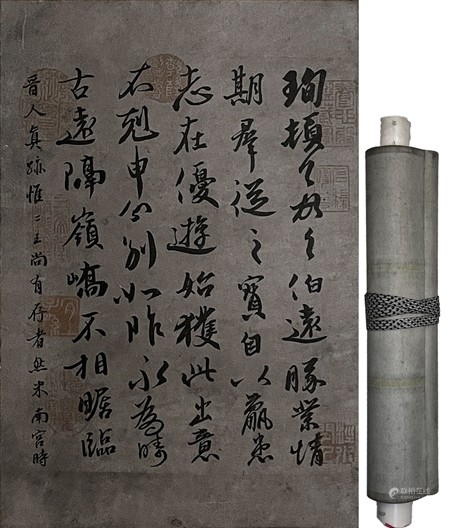 珣頓々首々伯遠勝業情
期羣從之寶自以羸患
志在優遊始獲此出意
不剋申分別如昨永為疇
古遠隔嶺嶠不相瞻臨
晉人真跡惟二王尚有存者然米南宮時
联拍在线